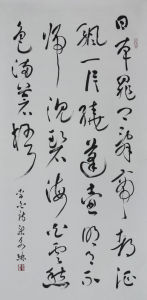 日本晁卿辭帝都征
帆一片繞蓬壺明月不
歸沉碧海白雲愁
色滿蒼梧